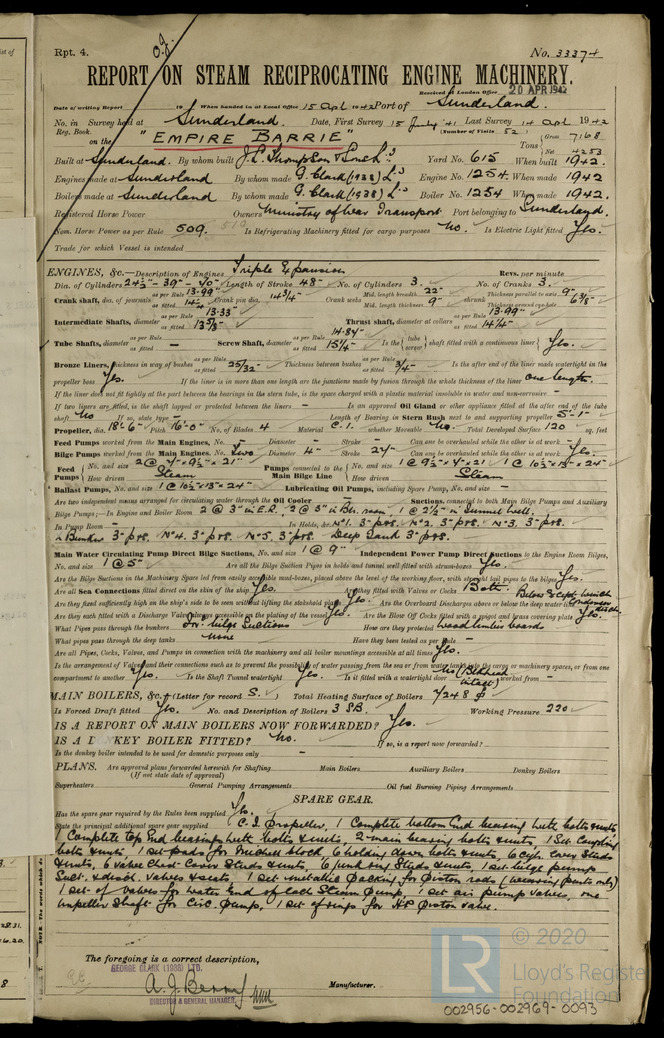 Rpt. 4.
No. 33374
REPORT ON STEAM RECIPROCATING ENGINE MACHINERY.
Received at London Office 20 APR 1942
Date of writing Report 19 When handed in at Local Office 15 Apl 1942 Port of Sunderland.
No. in Survey held at Sunderland. Date, First Survey 15 July '41 Last Survey 14 Apl 1942
Reg. Book. (Number of Visits 52)
on the "EMPIRE BARRIE" Tons Gross 7168 Net 4253
Built at Sunderland. By whom built J.L. Thompson & Sons Ld Yard No. 615 When built 1942.
Engines made at Sunderland By whom made G. Clark (1938) Ld Engine No. 1254 When made 1942
Boilers made at Sunderland By whom made G. Clark (1938) Ld Boiler No. 1254 When made 1942.
Registered Horse Power Owners Ministry of War Transport Port belonging to Sunderland.
Nom. Horse Power as per Rule 509. 510 Is Refrigerating Machinery fitted for cargo purposes No. Is Electric Light fitted Yes.
Trade for which Vessel is intended
ENGINES, &c.—Description of Engines Triple Expansion Revs. per minute
Dia. of Cylinders 24½" - 39" - 70" Length of Stroke 48" No. of Cylinders 3. No. of Cranks 3.
Crank shaft, dia. of journals as per Rule 13.99" as fitted 14¼" Crank pin dia. 14¾" Crank webs Mid. length breadth 22" Mid. length thickness 9" shrunk Thickness parallel to axis 9" Thickness around eye-hole 6⅝"
Intermediate Shafts, diameter as per Rule 13.33" as fitted 13⅝" Thrust shaft, diameter at collars as per Rule 13.99" as fitted 14¼"
Tube Shafts, diameter as per Rule as fitted - Screw Shaft, diameter as per Rule 14.84" as fitted 15¼" Is the tube screw shaft fitted with a continuous liner Yes.
Bronze Liners, thickness in way of bushes as per Rule as fitted 25/32" Thickness between bushes as per Rule as fitted ¾" Is the after end of the liner made watertight in the
propeller boss Yes. If the liner is in more than one length are the junctions made by fusion through the whole thickness of the liner one length.
If the liner does not fit tightly at the part between the bearings in the stern tube, is the space charged with a plastic material insoluble in water and non-corrosive -
If two liners are fitted, is the shaft lapped or protected between the liners - Is an approved Oil Gland or other appliance fitted at the after end of the tube
shaft No If so, state type - Length of Bearing in Stern Bush next to and supporting propeller 5'-1"
Propeller, dia. 18'-6" Pitch 16'-0" No. of Blades 4 Material C.I. whether Moveable No. Total Developed Surface 120 sq. feet
Feed Pumps worked from the Main Engines, No. - Diameter - Stroke - Can one be overhauled while the other is at work -
Bilge Pumps worked from the Main Engines, No. Two Diameter 4" Stroke 24" Can one be overhauled while the other is at work Yes.
Feed Pumps No. and size 2 @ 7" x 9½" x 21" Pumps connected to the Main Bilge Line No. and size 1 @ 9½" x 7" x 21 1 @ 10½" x 13" x 24"
How driven Steam How driven Steam
Ballast Pumps, No. and size 1 @ 10½" x 13" x 24" Lubricating Oil Pumps, including Spare Pump, No. and size -
Are two independent means arranged for circulating water through the Oil Cooler - Suctions, connected to both Main Bilge Pumps and Auxiliary
Bilge Pumps;—In Engine and Boiler Room 2 @ 3" in E.R., 2 @ 3" in Blr. room, 1 @ 2½" in Tunnel well.
In Pump Room - In Holds, &c. No.1. 3" p&s. No.2. 3" p&s. No.3. 3" p&s.
Bunker 3" p&s. No.4. 3" p&s. No.5. 3" p&s. Deep Tank 3" p&s.
Main Water Circulating Pump Direct Bilge Suctions, No. and size 1 @ 9" Independent Power Pump Direct Suctions to the Engine Room Bilges,
No. and size 1 @ 5" Are all the Bilge Suction Pipes in holds and tunnel well fitted with strum-boxes Yes.
Are the Bilge Suctions in the Machinery Space led from easily accessible mud-boxes, placed above the level of the working floor, with straight tail pipes to the bilges Yes.
Are all Sea Connections fitted direct on the skin of the ship Yes. Are they fitted with Valves or Cocks Both
Are they fixed sufficiently high on the ship's side to be seen without lifting the stokehold plates Yes. Are the Overboard Discharges above or below the deep water line Below except winch condenser disch.
Are they each fitted with a Discharge Valve always accessible on the plating of the vessel Yes. Are the Blow Off Cocks fitted with a spigot and brass covering plate Yes.
What Pipes pass through the bunkers For. bilge Suctions How are they protected Wood limber boards
What pipes pass through the deep tanks None Have they been tested as per Rule -
Are all Pipes, Cocks, Valves, and Pumps in connection with the machinery and all boiler mountings accessible at all times Yes.
Is the arrangement of Valves and their connections such as to prevent the possibility of water passing from the sea or from water tanks into the cargo or machinery spaces, or from one
compartment to another Yes. Is the Shaft Tunnel watertight Yes. Is it fitted with a watertight door No (Bulkhead intact) worked from -
MAIN BOILERS, &c.—(Letter for record S.) Total Heating Surface of Boilers 7248 ф
Is Forced Draft fitted Yes. No. and Description of Boilers 3 SB. Working Pressure 220
IS A REPORT ON MAIN BOILERS NOW FORWARDED? Yes.
IS A DONKEY BOILER FITTED? No. If so, is a report now forwarded? -
Is the donkey boiler intended to be used for domestic purposes only -
PLANS. Are approved plans forwarded herewith for Shafting Main Boilers Auxiliary Boilers Donkey Boilers
(If not state date of approval)
Superheaters General Pumping Arrangements Oil fuel Burning Piping Arrangements
SPARE GEAR.
Has the spare gear required by the Rules been supplied Yes.
State the principal additional spare gear supplied C.I. Propeller, 1 Complete bottom End bearing with bolts & nuts
1 Complete top End bearings with bolts & nuts, 2 main bearing bolts & nuts, 1 Set Coupling
bolts & nuts, 1 set pads for Michell block 6 holding down bolts & nuts, 6 cyl. cover Studs
& nuts, 6 valve Chest Cover Studs & nuts, 6 junk ring Studs & nuts, 1 set bilge pump
Suct. & disch. valves & seats, 1 Set metallic packing for piston rods (wearing parts only)
1 set of valves for water End of each Steam pump, 1 set air pump valves, one
impeller Shaft for Circ. pump, 1 set of rings for HP piston valve.
The foregoing is a correct description,
GEORGE CLARK (1938) LTD.
A. J. Berry
DIRECTOR & GENERAL MANAGER.
Manufacturer.
LR
© 2020
Lloyd's Registe
Foundation
002956-002969-0093